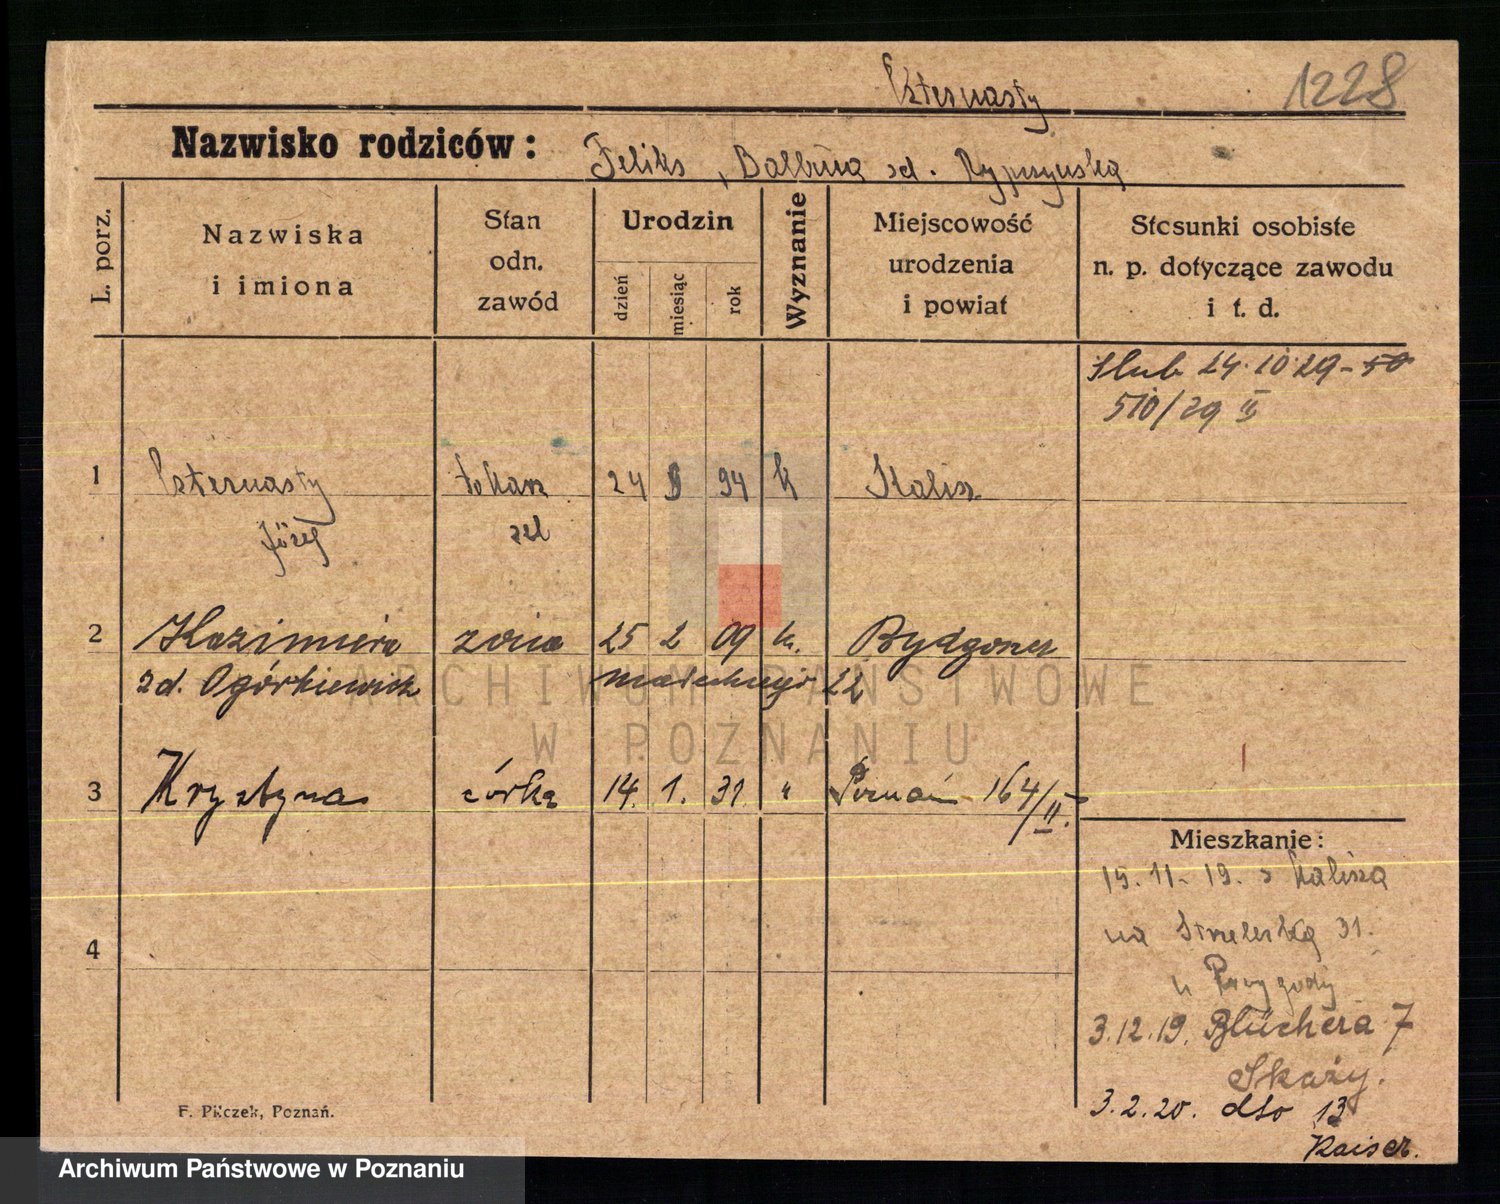 1228
Nazwisko rodziców:
Feliks, Balbina zd. Rypszyńska
L. porz.
Nazwiska
i imiona
Stan
odn.
zawód
Urodzin
dzień
miesiąc
rok
Wyznanie
Miejscowość
urodzenia
i powiat
Stosunki osobiste
n. p. dotyczące zawodu
i t. d.
Ślub 24.10.29 - 50
510/29 II
1
tokarz 24 94 k Kalisz
Józef
2 Kazimiera żona 25 2 09 k. Bydgoszcz
zd. Ogórkiewicz 22
3 Krystyna córka 14. 1. 31. " Poznań 164/II.
Mieszkanie:
15.11.19. z Kalisza
na Strzelecką 31.
u Przygody
4
3.12.19. Blüchera 7
Skaży.
3.2.20. dto 13
Kaiser.
F. Pilczek, Poznań.
ARCHIWUM PAŃSTWOWE
W POZNANIU
Archiwum Państwowe w Poznaniu